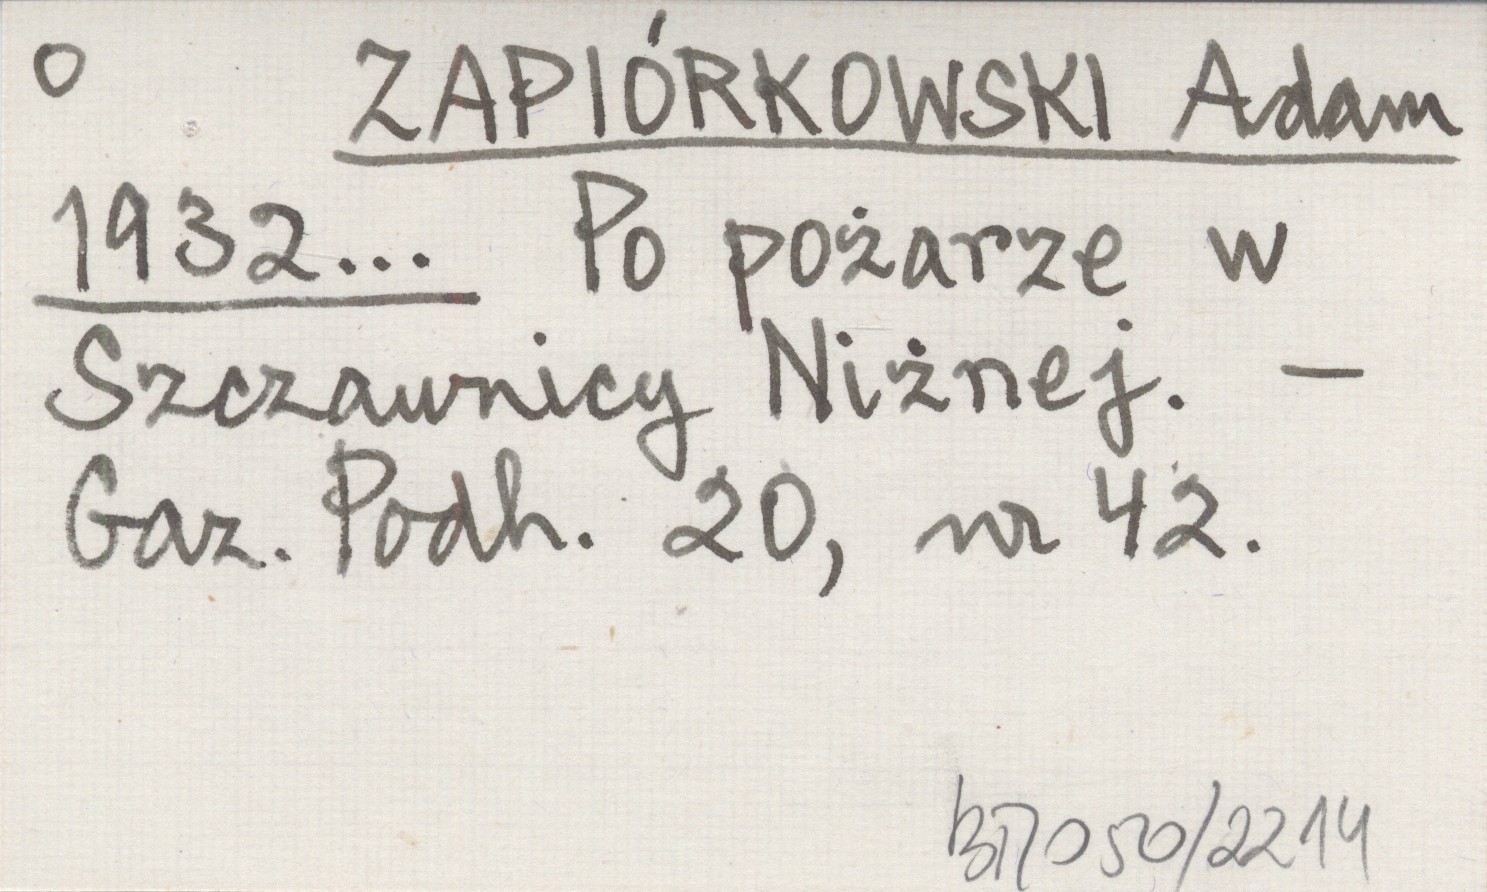 o ZAPIÓRKOWSKI Adam
1932... Po pożarze w
Szczawnicy Niżnej. —
Gaz. Podh. 20, nr 42.
050/2214